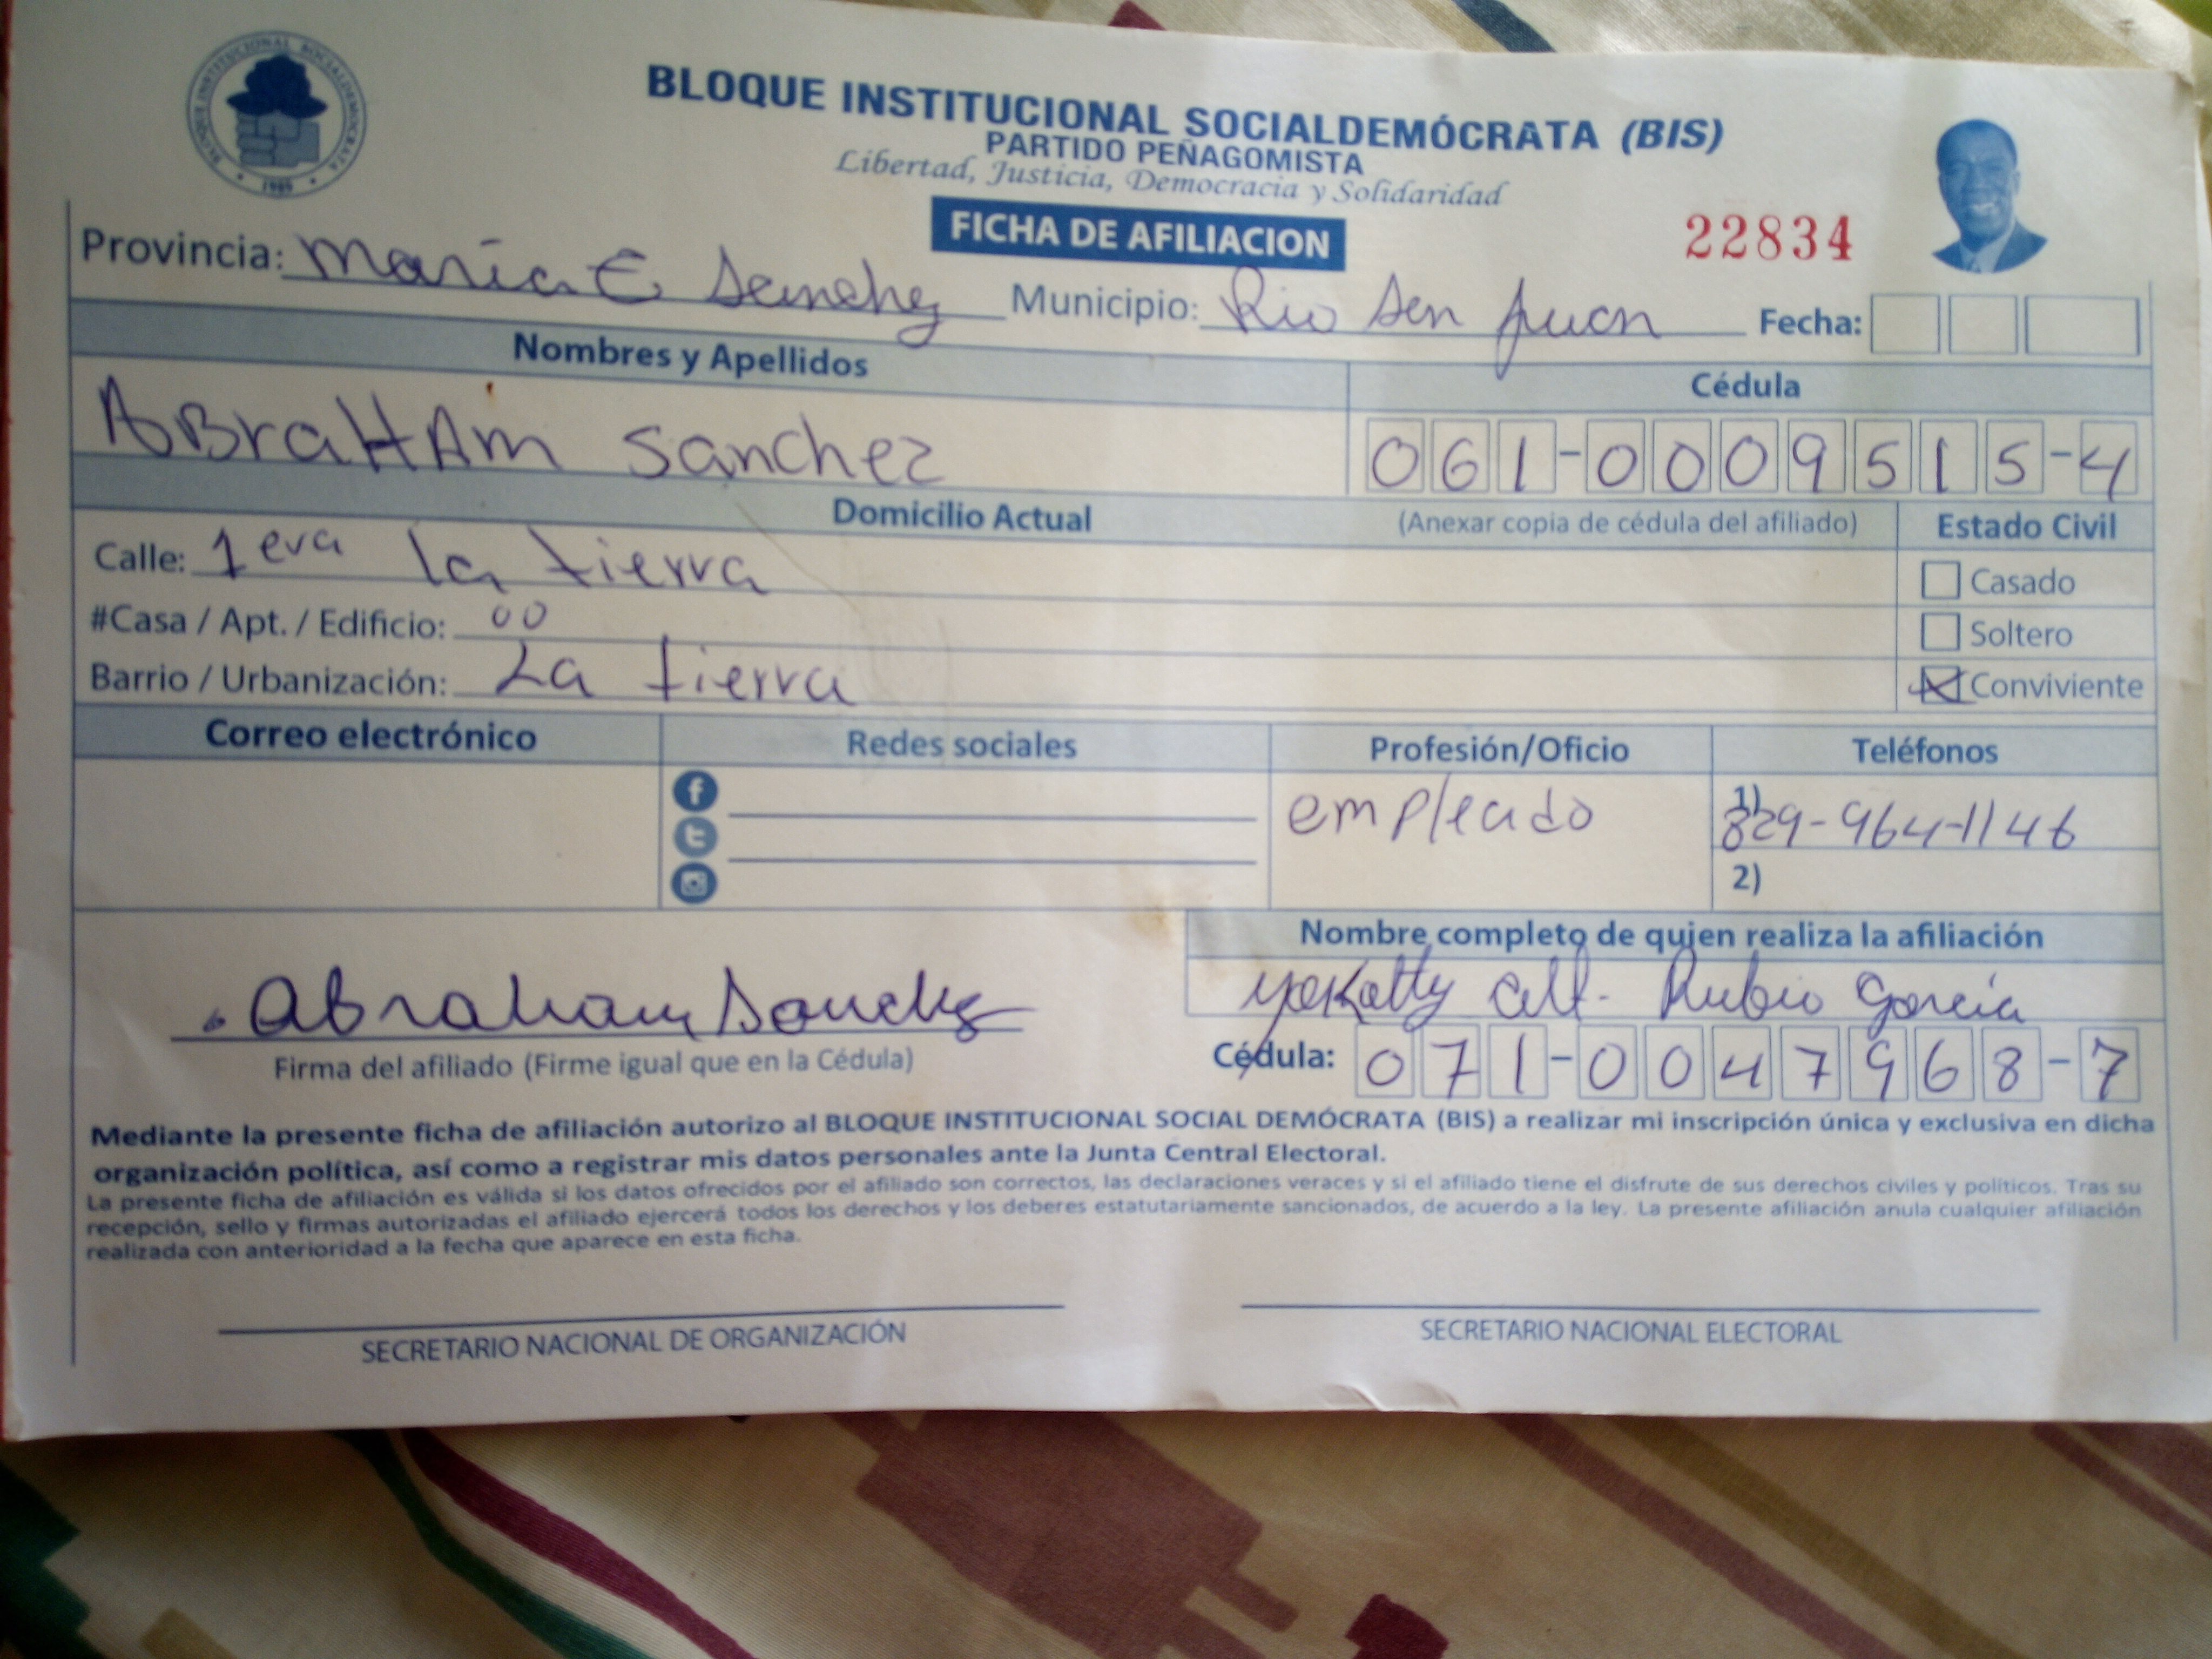 BLOQUE INSTITUCIONAL SOCIALDEMOCRATA
1985
BLOQUE INSTITUCIONAL SOCIALDEMÓCRATA (BIS)
PARTIDO PEÑAGOMISTA
Libertad, Justicia, Democracia y Solidaridad
FICHA DE AFILIACION
22834
Provincia: Maria E Sanchez Municipio: Rio San Juan Fecha:
Nombres y Apellidos
Cédula
ABraHAm Sanchez
061-0009515-4
Domicilio Actual (Anexar copia de cédula del afiliado) Estado Civil
Calle: 1era la tierra
Casado
#Casa / Apt. / Edificio: 00
Soltero
Barrio / Urbanización: La tierra
Conviviente
Correo electrónico Redes sociales Profesión/Oficio Teléfonos
empleado
1) 829-964-1146
2)
Nombre completo de quien realiza la afiliación
Abraham Sanchez
Yokatty Alt. Rubio Garcia
Firma del afiliado (Firme igual que en la Cédula)
Cédula: 071-0047968-7
Mediante la presente ficha de afiliación autorizo al BLOQUE INSTITUCIONAL SOCIAL DEMÓCRATA (BIS) a realizar mi inscripción única y exclusiva en dicha
organización política, así como a registrar mis datos personales ante la Junta Central Electoral.
La presente ficha de afiliación es válida si los datos ofrecidos por el afiliado son correctos, las declaraciones veraces y si el afiliado tiene el disfrute de sus derechos civiles y políticos. Tras su
recepción, sello y firmas autorizadas el afiliado ejercerá todos los derechos y los deberes estatutariamente sancionados, de acuerdo a la ley. La presente afiliación anula cualquier afiliación
realizada con anterioridad a la fecha que aparece en esta ficha.
SECRETARIO NACIONAL DE ORGANIZACIÓN
SECRETARIO NACIONAL ELECTORAL